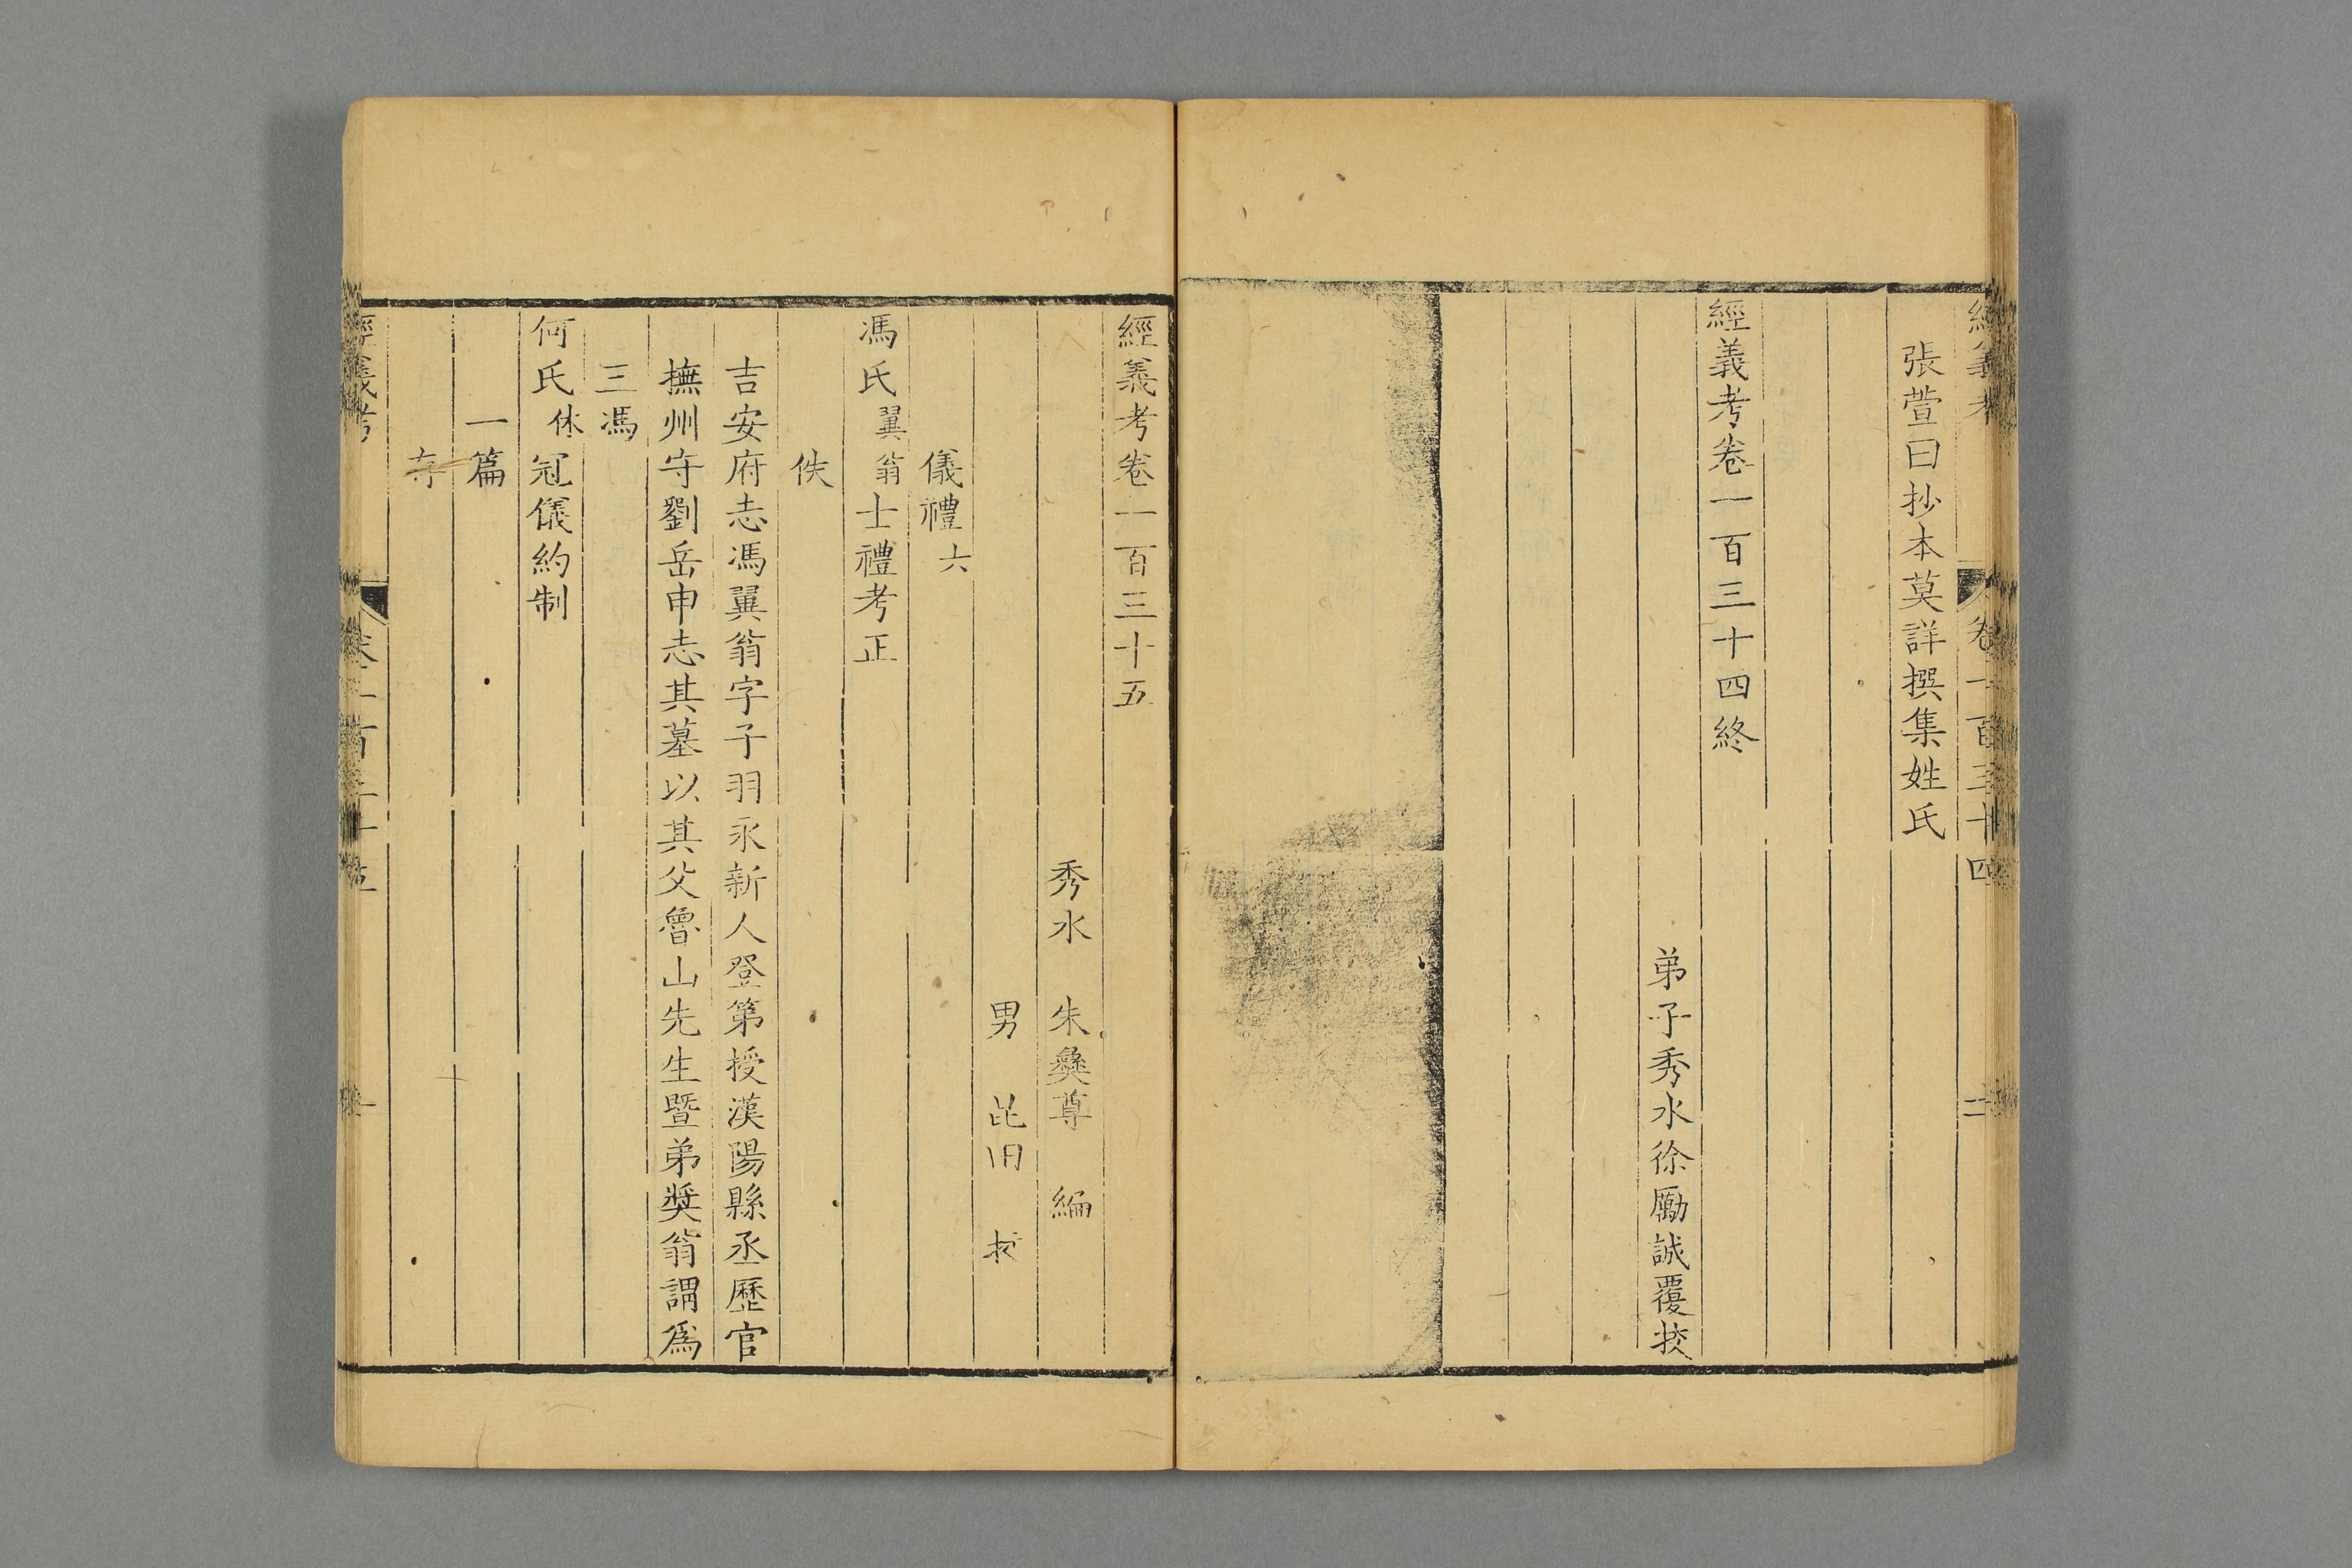 經義考 卷一百三十四 二十
張萱曰抄本莫詳撰集姓氏
經義考卷一百三十四終
弟子秀水徐勵誠覆挍
經義考卷一百三十五
秀水 朱彝尊 編
男 昆田 挍
儀禮六
馮氏翼翁士禮考正
佚
吉安府志馮翼翁字子羽永新人登第授漢陽縣丞歷官
撫州守劉岳申志其墓以其父魯山先生暨弟奬翁謂爲
三馮
何氏休冠儀約制
一篇
存
經義考 卷一百三十五 一